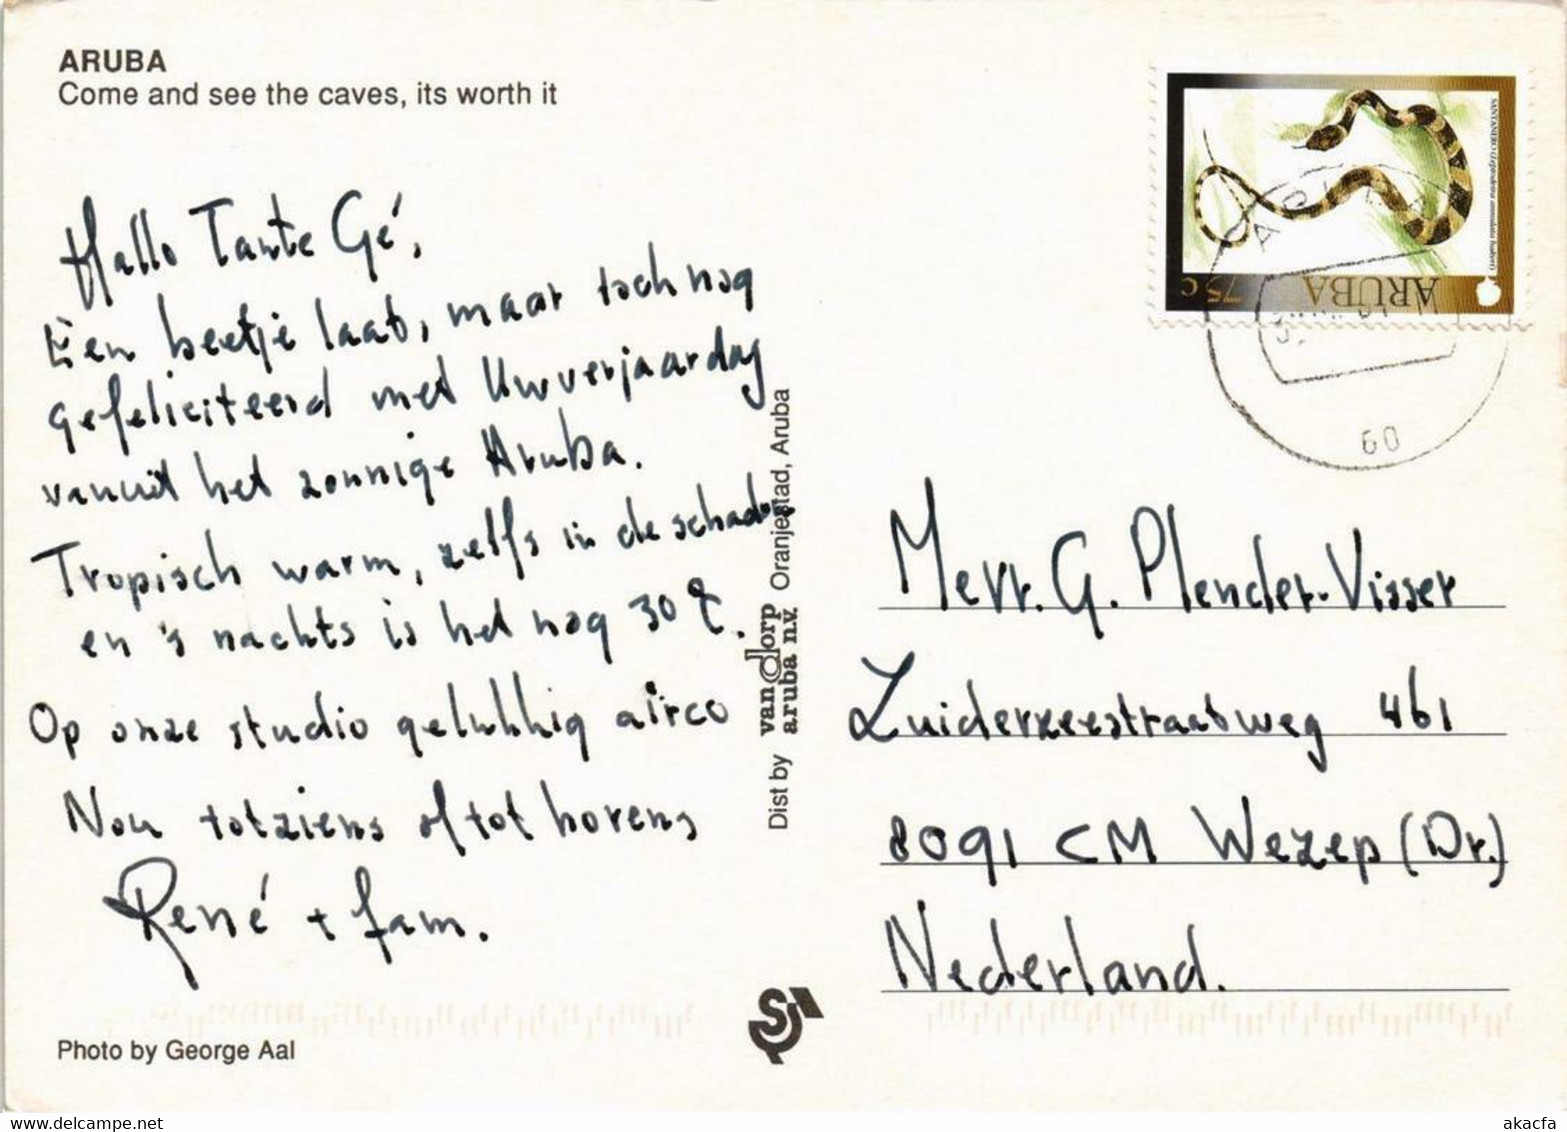 ARUBA
Come and see the caves, its worth it
Hallo Tante Gé,
Een beetje laat, maar toch nog
gefeliciteerd met Uw verjaardag
vanuit het zonnige Aruba.
Tropisch warm, zelfs in de schaduw
en 's nachts is het nog 30 °C.
Op onze studio gelukkig airco
Nou tot ziens of tot horens
René + fam.
Photo by George Aal
Dist by van dorp aruba n.v. Oranjestad, Aruba
SANTANERO (Leptodeira annulata bakeri)
75 c ARUBA
60
Mevr. G. Plender-Visser
Zuiderzeestraatweg 461
8091 CM Wezep (Dr.)
Nederland.
ARUBA
akacfa